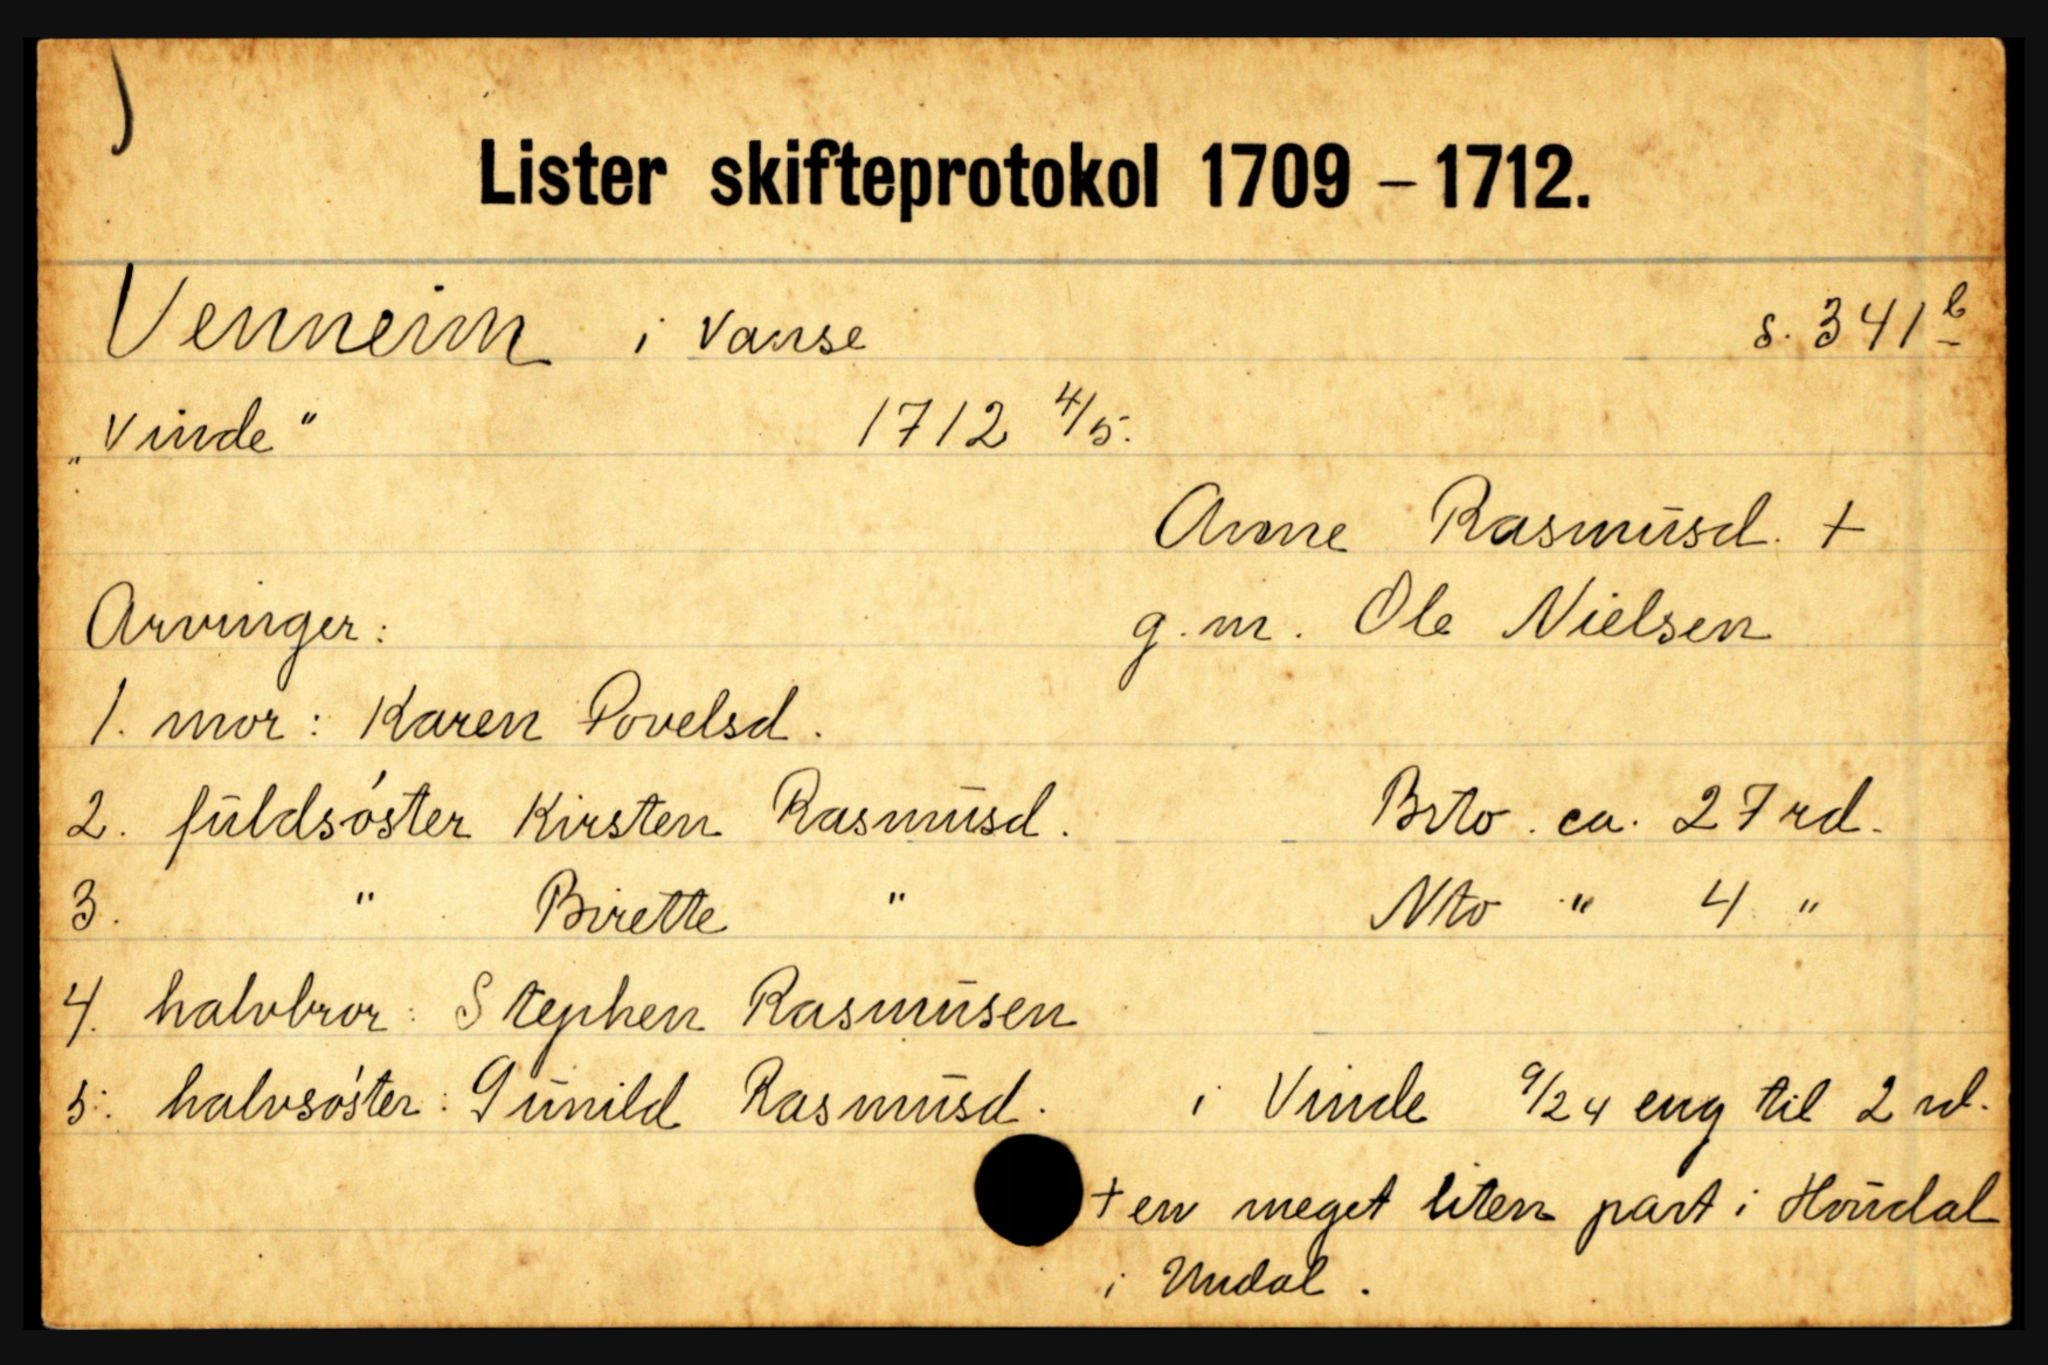 Lister skifteprotokol 1709 – 1712.
Venneim i Vanse s. 341 b
„Vinde" 1712 4/5.
Anne Rasmusd. +
Arvinger: g.m. Ole Nielsen
1. mor: Karen Povelsd.
2. fuldsøster Kirsten Rasmusd. Brto. ca. 27 rd.
3. " Birette " Nto " 4 "
4. halvbror: Stephen Rasmusen
5. halvsøster: Gunild Rasmusd. i Vinde 9/24 eng til 2 rd.
+ en meget liten part i Houdal
i Undal.